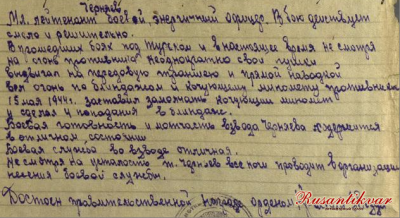 Черняев
Мл. лейтенант боевой, энергичный офицер. В бою действует
смело и решительно.
В прошедших боях под и в настоящее время не смотря
на огонь противника неоднократно свои пушки
выдвигал на передовую траншею и прямой наводкой
вел огонь по блиндажам и кочующему миномету противника
15 мая 1944г. заставил замолчать кочующий миномет
и сделал 4 попадания в блиндаж.
Боевая готовность и матчасть взвода Черняева содержится
в отличном состоянии
Боевая служба во взводе отличная.
Не смотря на усталость т. Черняев все сам проводит в организации
несения боевой службы.
Достоин правительственной награды орденом
Rusantikvar